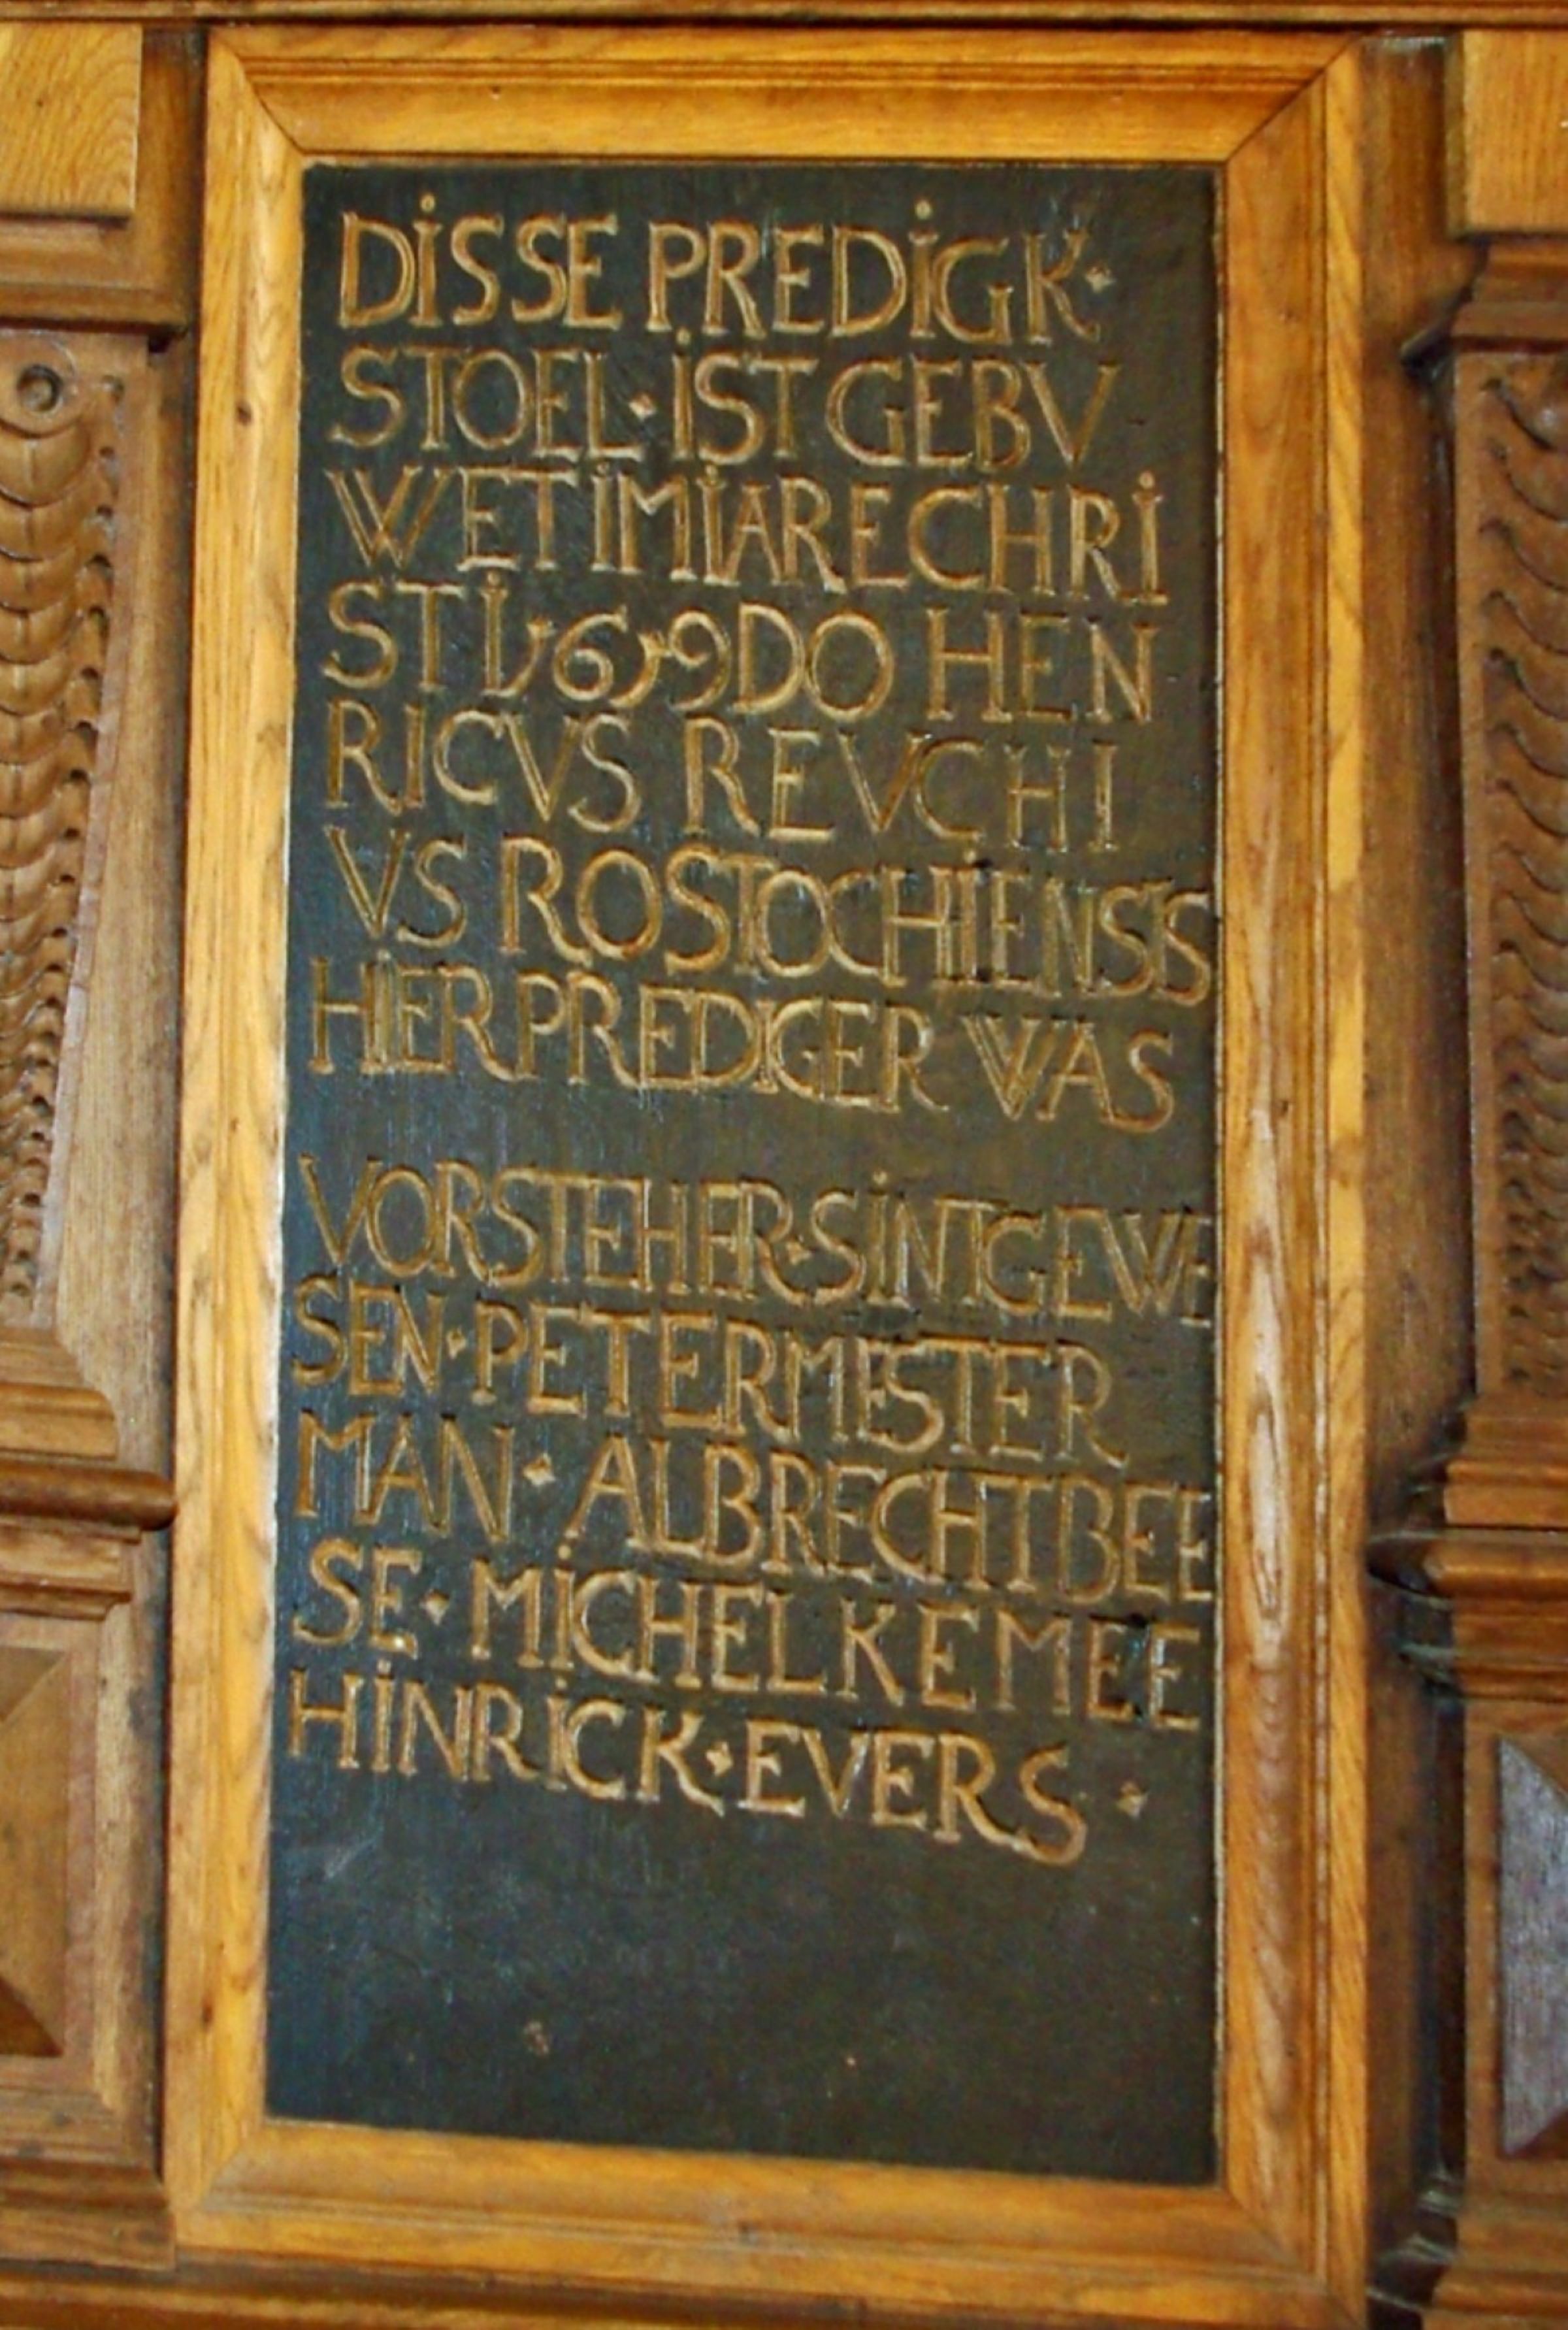 DISSE PREDIGK·
STOEL·IST GEBV
WET IM IARE CHRI
STI 1619 DO HEN
RICVS REVCHI
VS ROSTOCHIENSIS
HIER PREDIGER WAS
VORSTEHER·SINT GEWE
SEN·PETER MESTER
MAN·ALBRECHT BEE
SE·MICHEL KEMEE
HINRICK·EVERS·